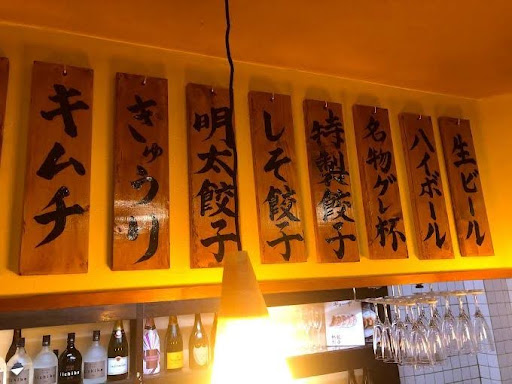 生ビール
ハイボール
名物グレ杯
特製餃子
しそ餃子
明太餃子
きゅうり
キムチ
iichiko